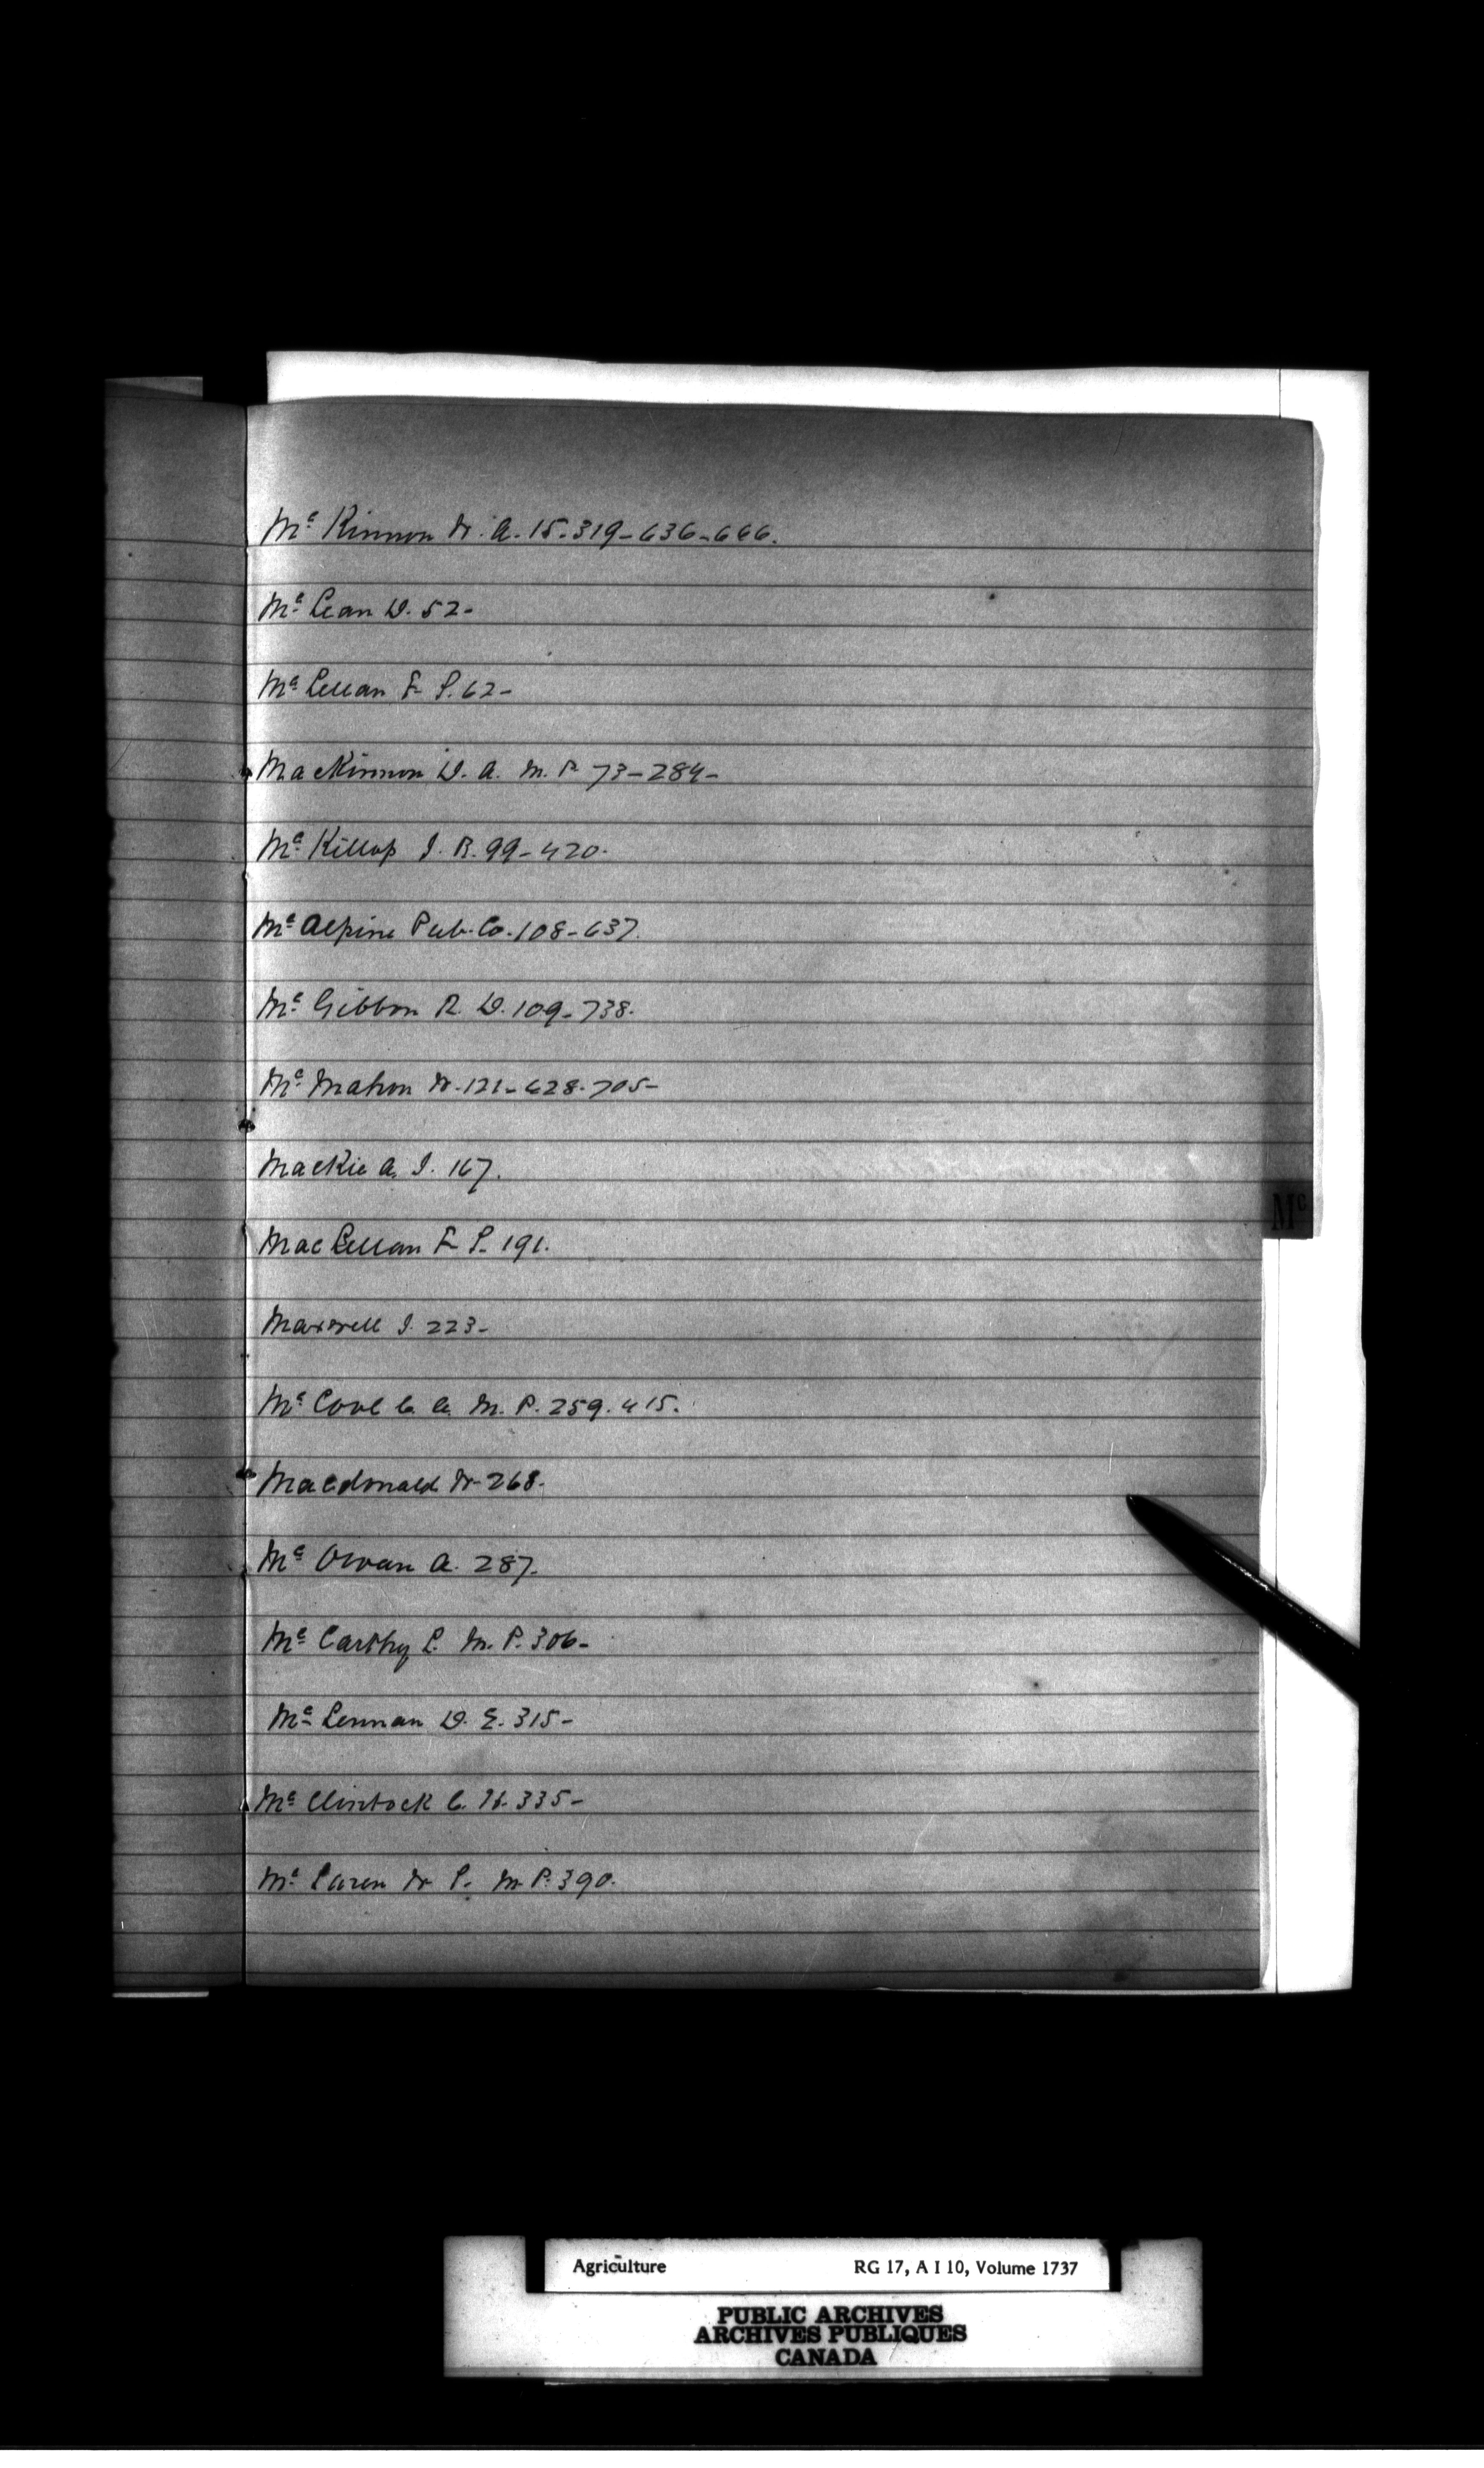 Mc Kinnon W. A. 15-319-636-666.
Mc Lean D. 52-
Mc Lellan F. L. 62-
MacKinnon D. A. M. P. 73-284-
Mc Killop J. R. 99-420.
Mc Alpine Pub. Co. 108-637.
Mc Gibbon R. D. 109-738.
Mc Mahon W. 121-628-705-
Mackie A. J. 167.
MacLellan F. L. 191.
Mc
Maxwell J. 223-
Mc Cool C. A. M. P. 259.415.
Macdonald W. 268.
Mc Owan A. 287.
Mc Carthy L. M. P. 306-
Mc Lennan D. E. 315-
Mc Clintock C. H. 335-
Mc Laren W. L. M. P. 390.
Agriculture RG 17, A I 10, Volume 1737
PUBLIC ARCHIVES
ARCHIVES PUBLIQUES
CANADA